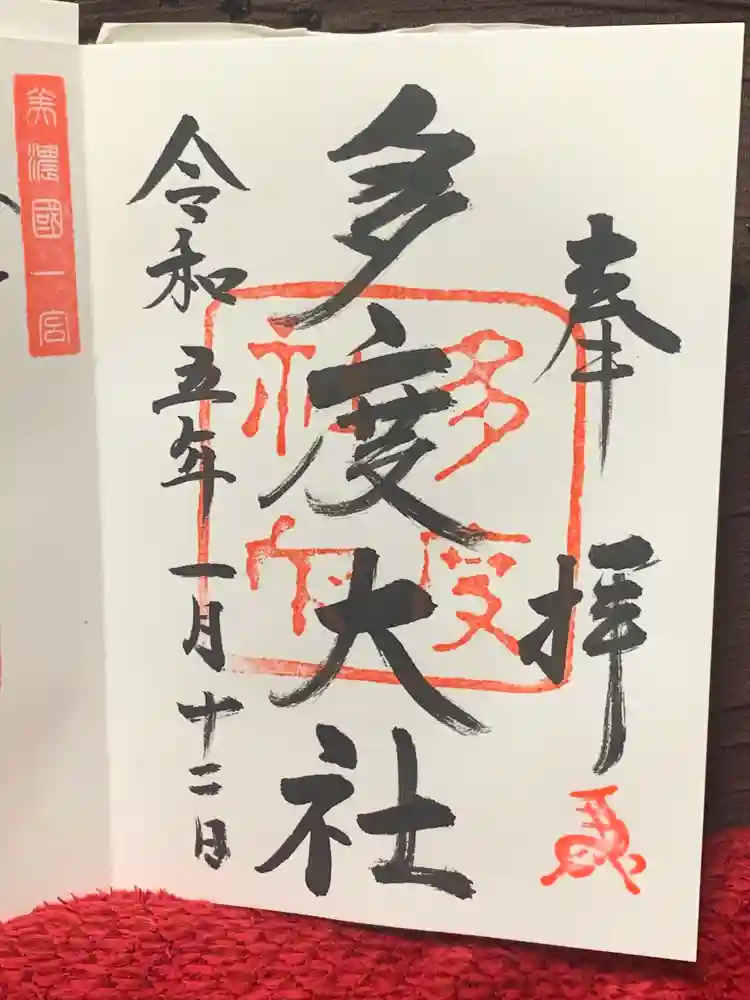 奉拝
多度大社
多度
神宮
令和五年一月十二日
美濃國一宮